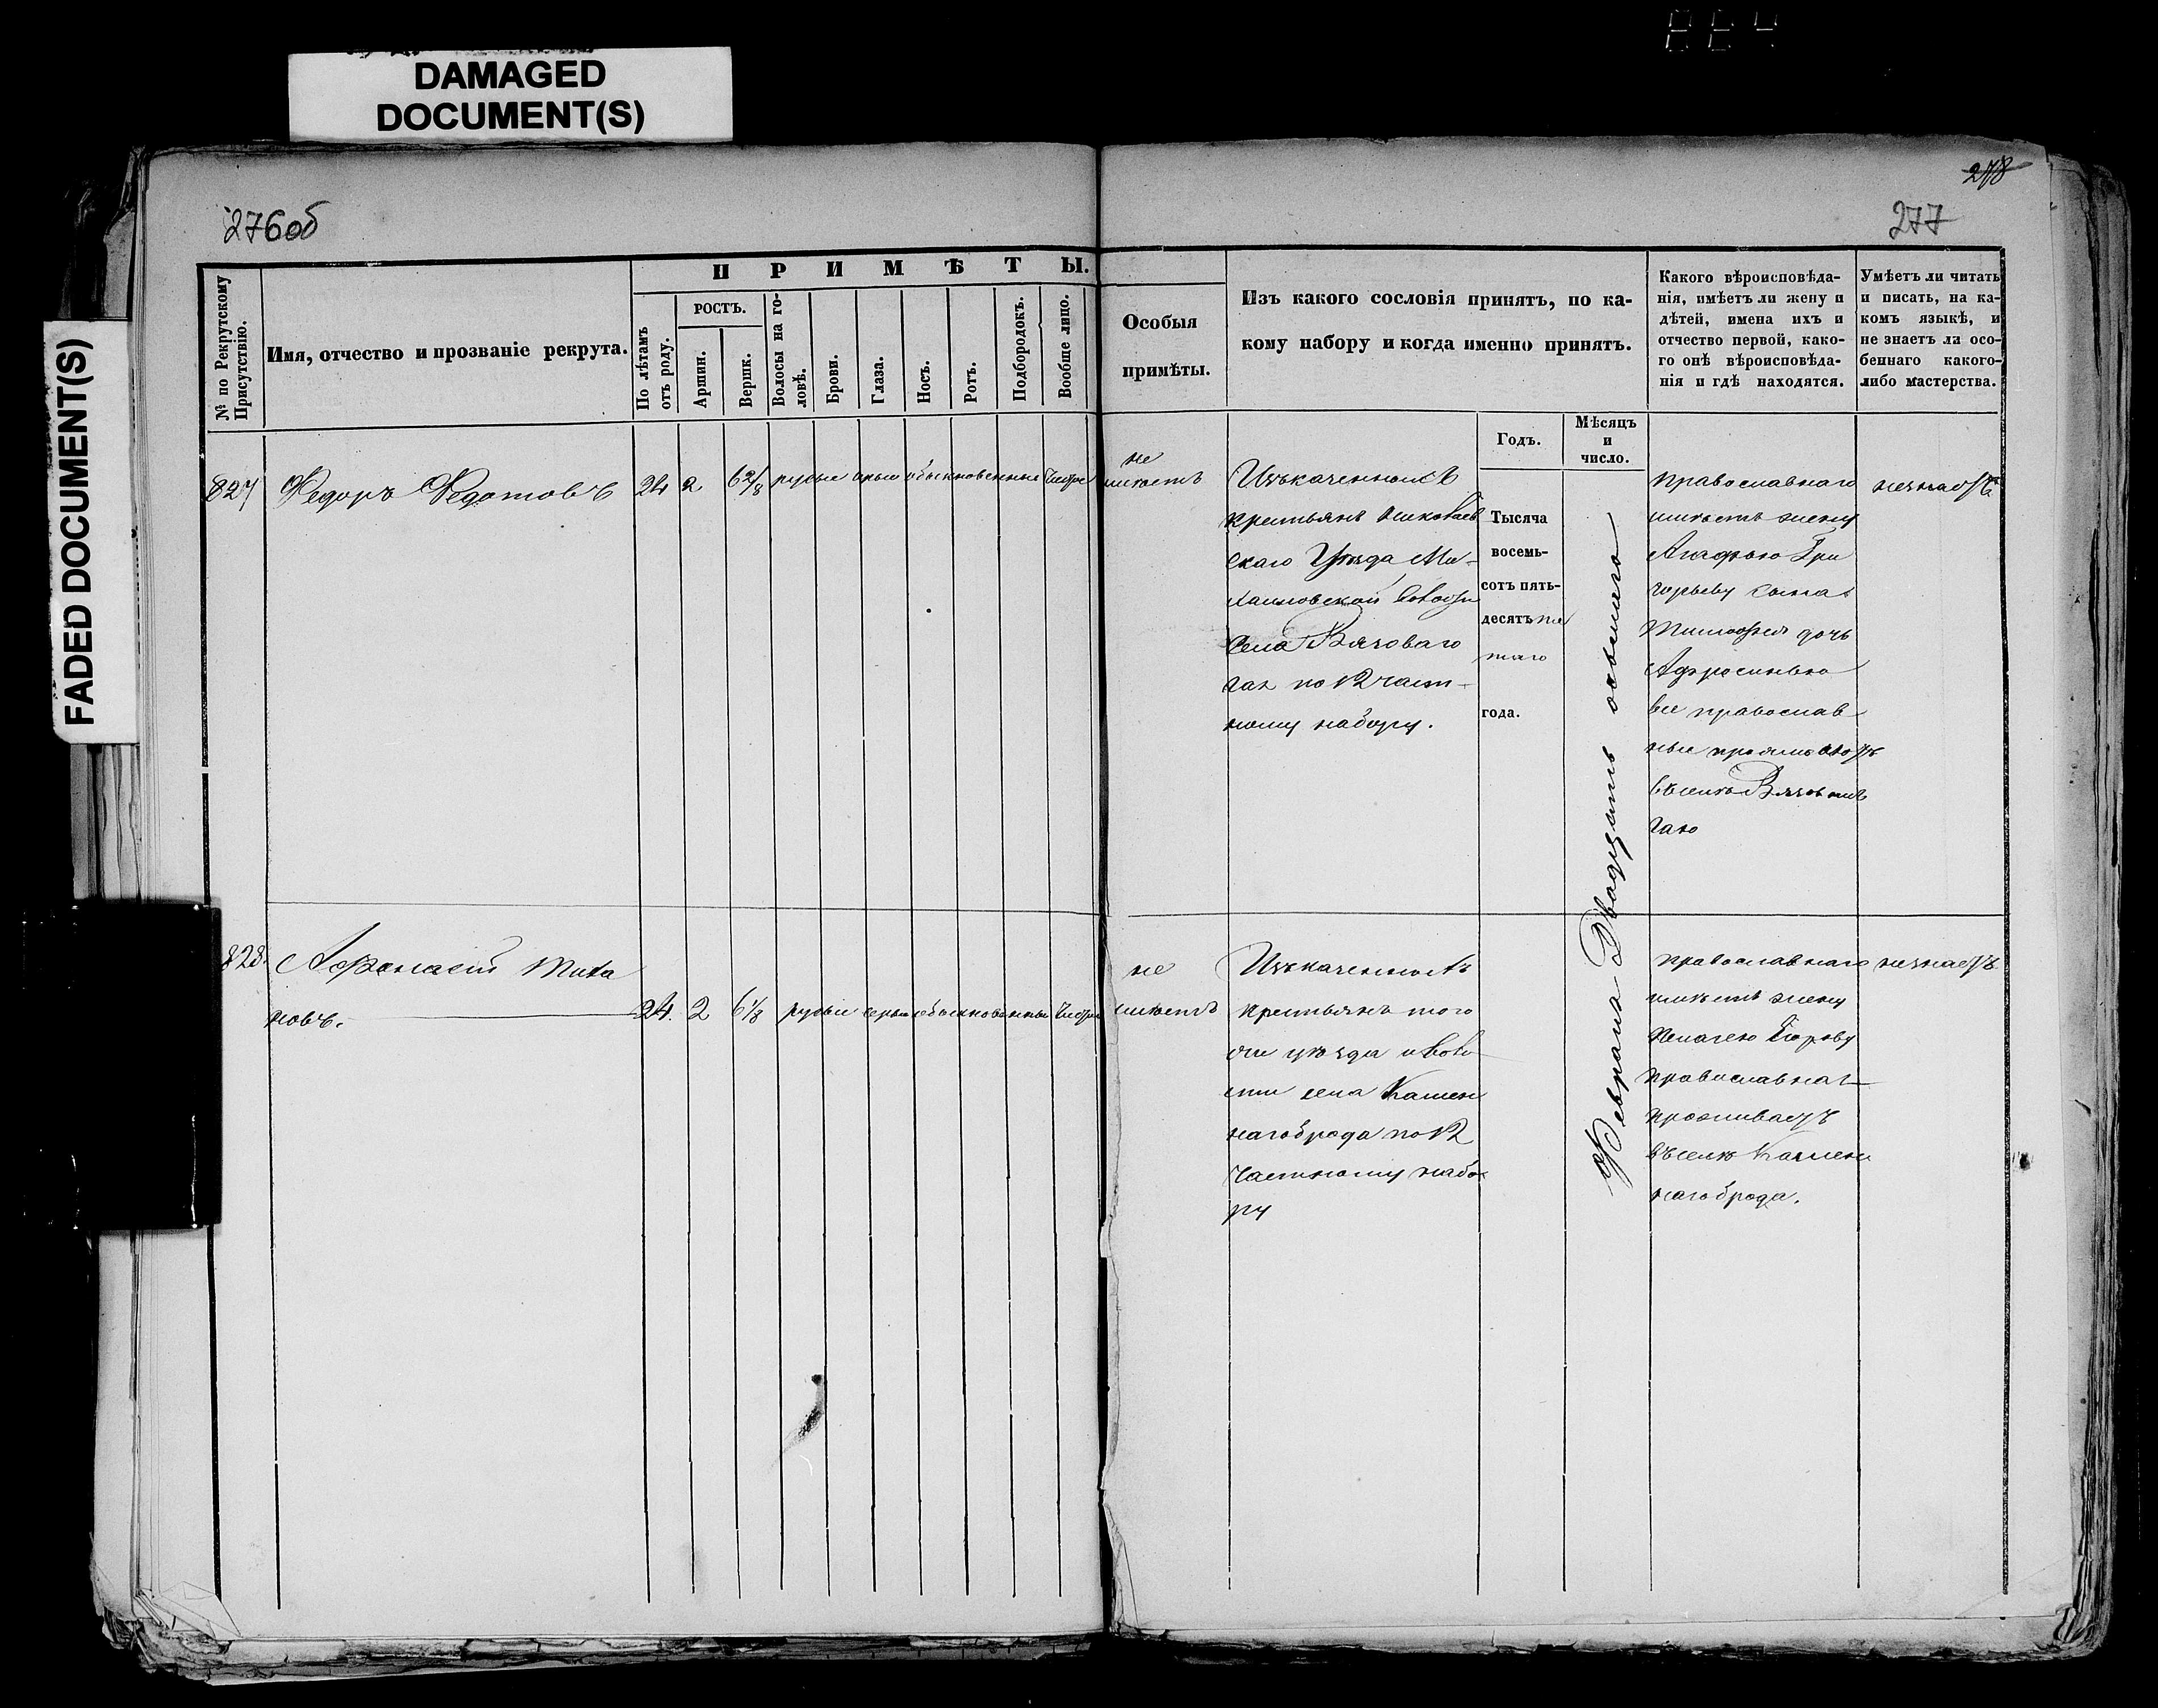 DAMAGED
DOCUMENT(S)
FADED DOCUMENT(S)
276об
278
277
№ по Рекрутскому Присутствію.
Имя, отчество и прозваніе рекрута.
ПРИМѢТЫ.
По лѣтамъ отъ роду.
РОСТЪ.
Аршин.
Вершк.
Волосы на го-
ловѣ.
Брови.
Глаза.
Носъ.
Ротъ.
Подбородокъ.
Вообще лицо.
Особыя
примѣты.
Изъ какого сословія принятъ, по ка-
кому набору и когда именно принятъ.
Какого вѣроисповѣда-
нія, имѣетъ ли жену и
дѣтей, имена ихъ и
отчество первой, како-
го онѣ вѣроисповѣда-
нія и гдѣ находятся.
Умѣетъ ли читать
и писать, на ка-
комъ языкѣ, и
не знаетъ ли осо-
беннаго какого-
либо мастерства.
Годъ.
Мѣсяцъ
и
число.
827
Федоръ Федотовъ
24 2 6 2/8 русые сѣрые обыкновенные чистое
не
имѣетъ
Изъ казенныхъ
крестьянъ
скаго Уѣзда Ми-
хайловской волости
села Вязоваго
гая по 12 част-
ному набору.
Тысяча
восемь-
сотъ пять-
десятъ пя
таго
года.
Февраля Двадцать осьмаго
православнаго
имѣетъ жену
Агафью Гри
горьеву сына
Тимофея дочь
Афросинью
все православ
ные проживаютъ
въ селѣ Вязовомъ
гаю
незнаетъ
828.
Афонасей Тихо
новъ.
24. 2 6 1/8 русые серые обыкновенные чистое
не
имѣетъ
Изъ казенныхъ
крестьянъ того
же уѣзда и воло
сти села Камен
наго брода по 12
частному набо
ру
православнаго
имѣетъ жену
Пелагею Егорову
православная
проживаетъ
въ селѣ Камен
наго брода.
незнаетъ